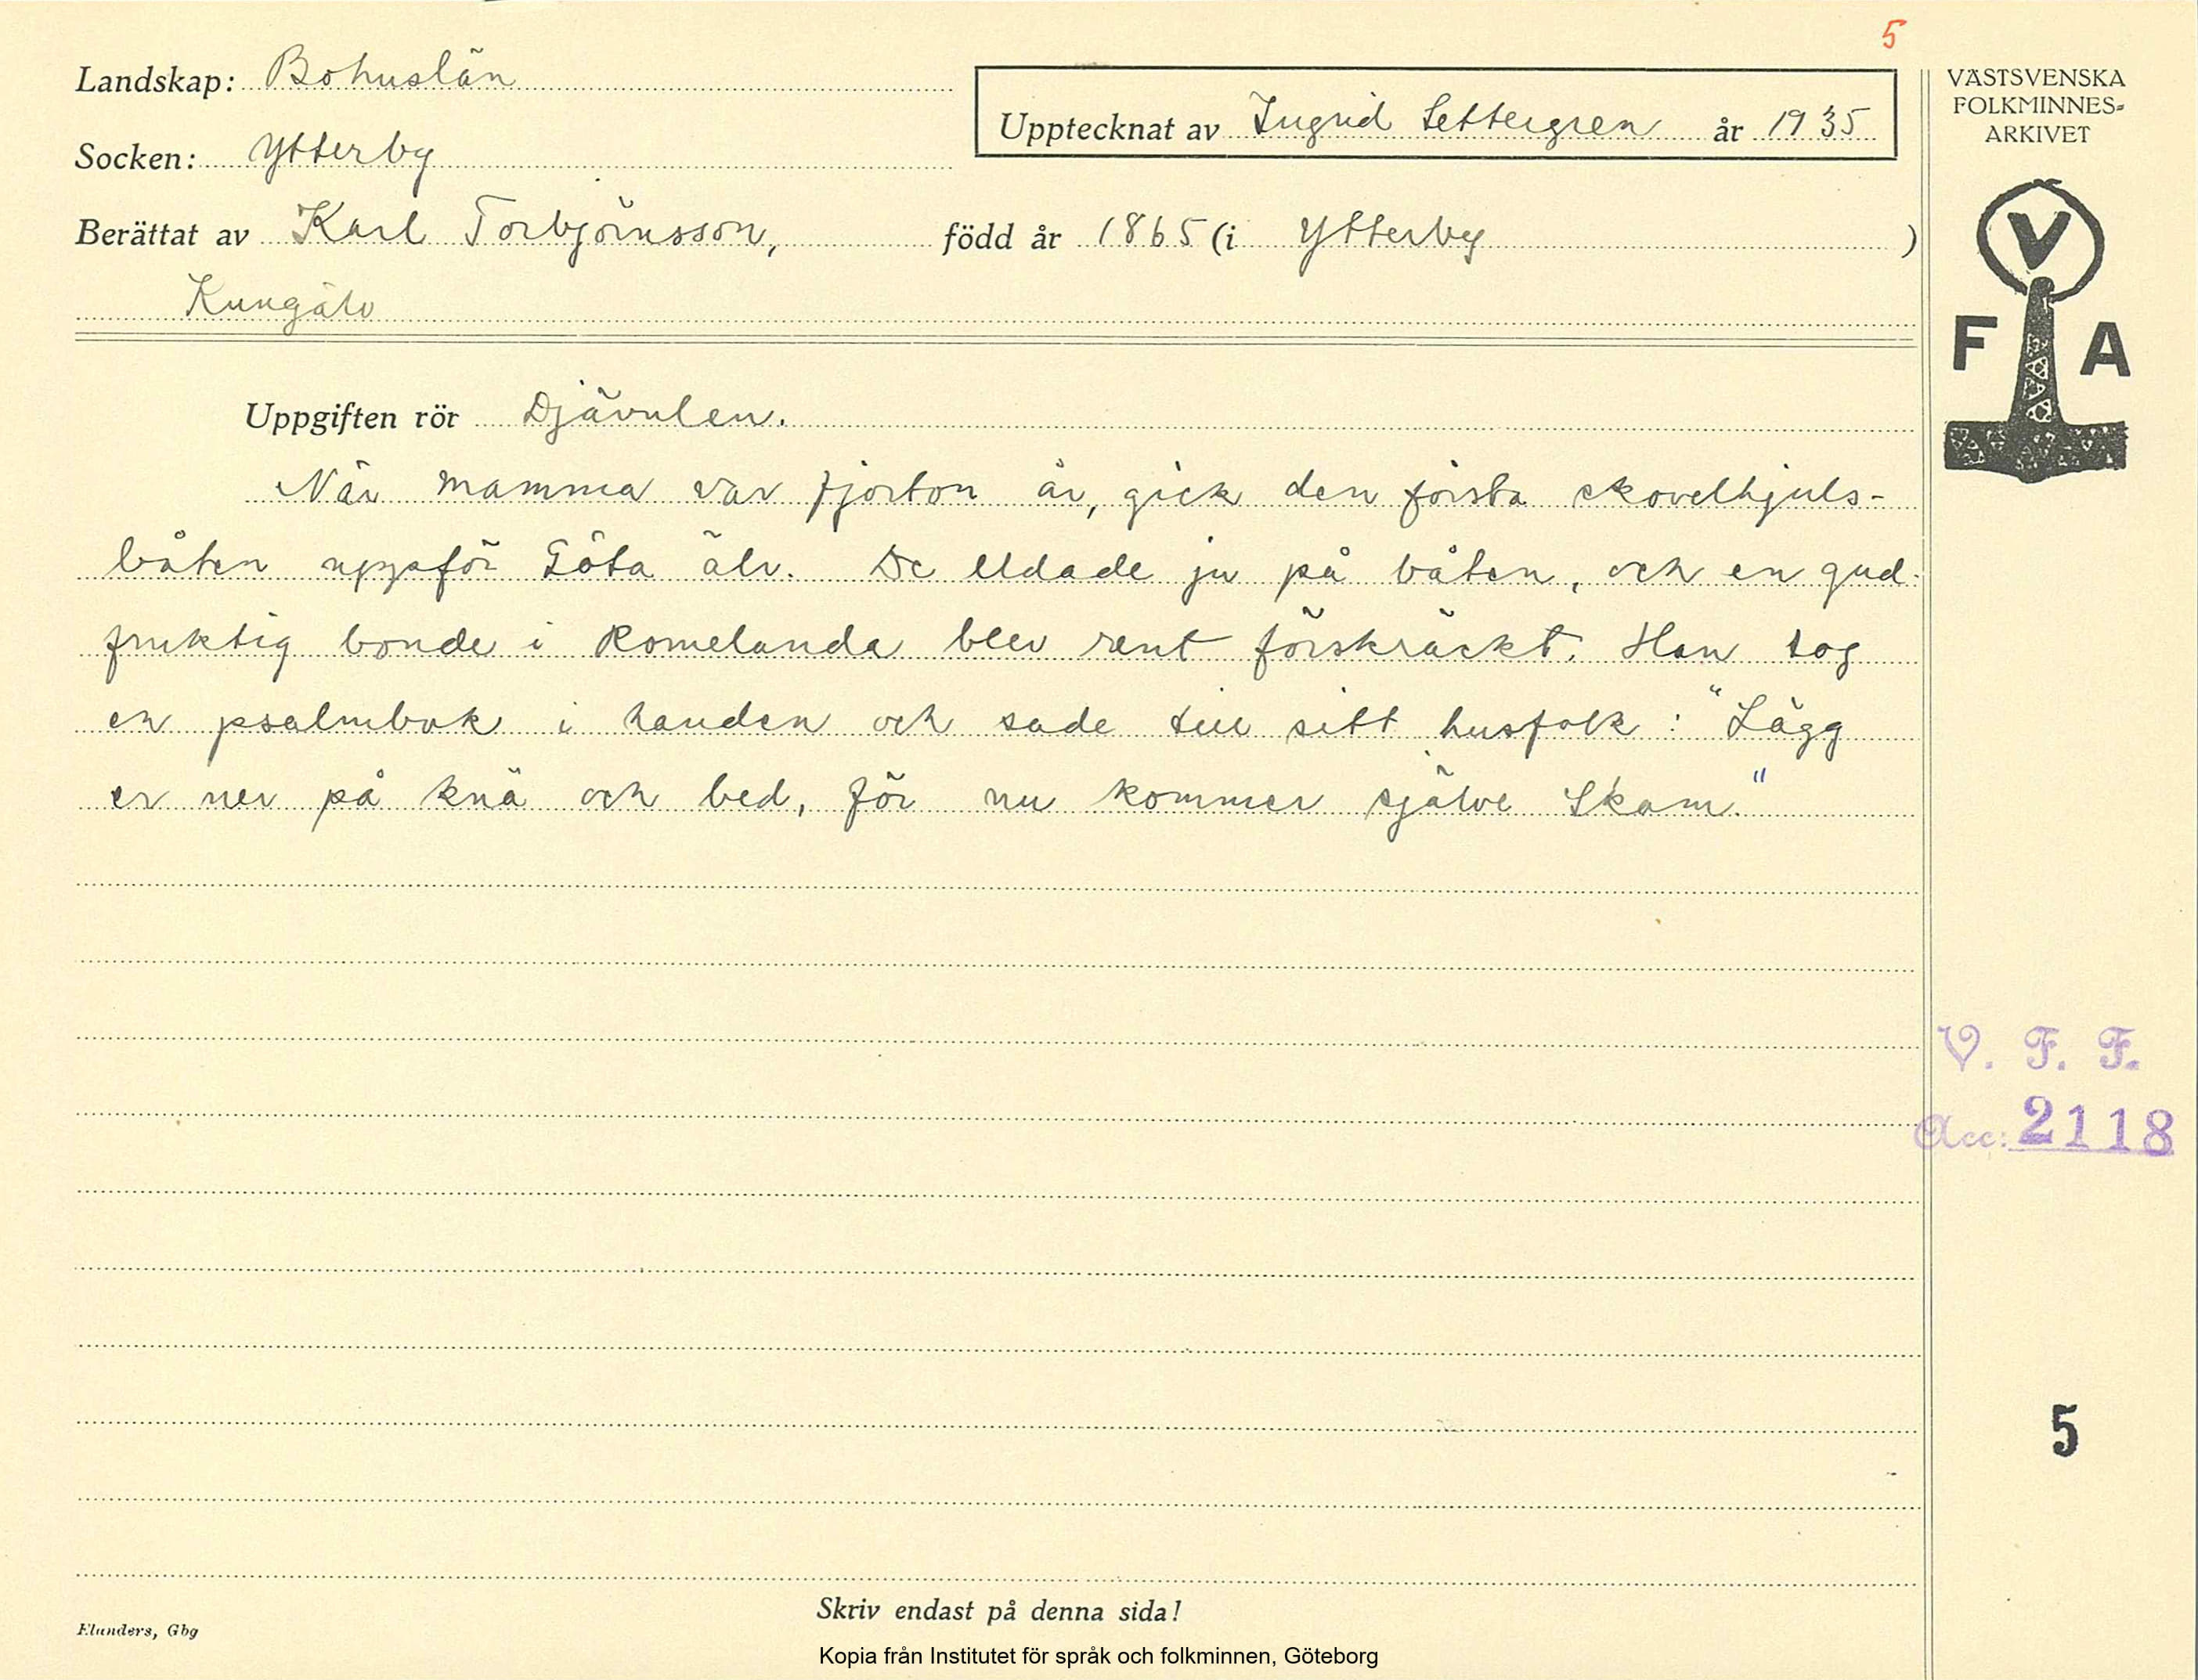 5
Landskap: Bohuslän
Upptecknat av Ingrid Settergren år 1935
VÄSTSVENSKA
FOLKMINNES-
ARKIVET
Socken: Ytterby
Berättat av Karl Torbjörnsson, född år 1865 (i Ytterby )
Kungälv
V
F A
Uppgiften rör Djävulen.
När mamma var fjorton år, gick den första skovelhjuls-
båten uppför Göta älv. De eldade ju på båten, och en gud-
fruktig bonde i Romelanda blev rent förskräckt. Han tog
en psalmbok i handen och sade till sitt husfolk: "Lägg
er ner på knä och bed, för nu kommer själve Skam."
V. F. F.
Acc: 2118
5
Skriv endast på denna sida!
Elanders, Gbg
Kopia från Institutet för språk och folkminnen, Göteborg